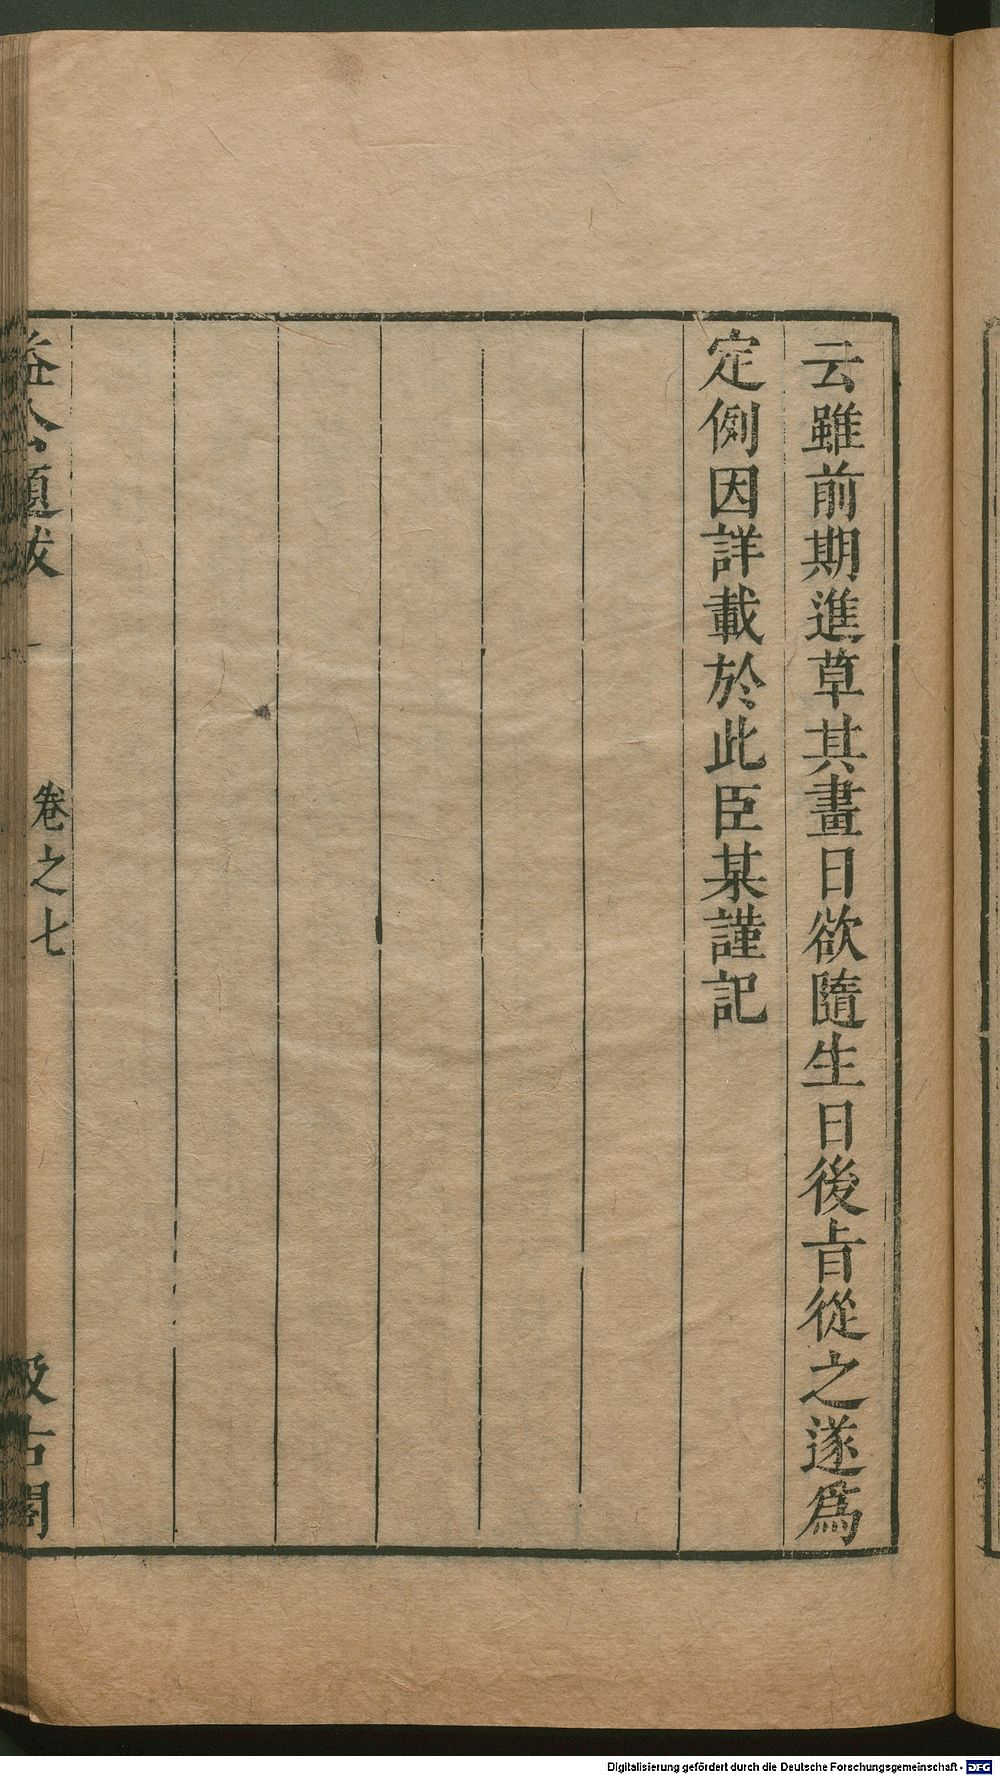 云雖前期進草其畫日欲隨生日後㫖從之遂爲
定例因詳載於此臣某謹記
益公題跋
卷之七
汲古閣
Digitalisierung gefördert durch die Deutsche Forschungsgemeinschaft - DFG